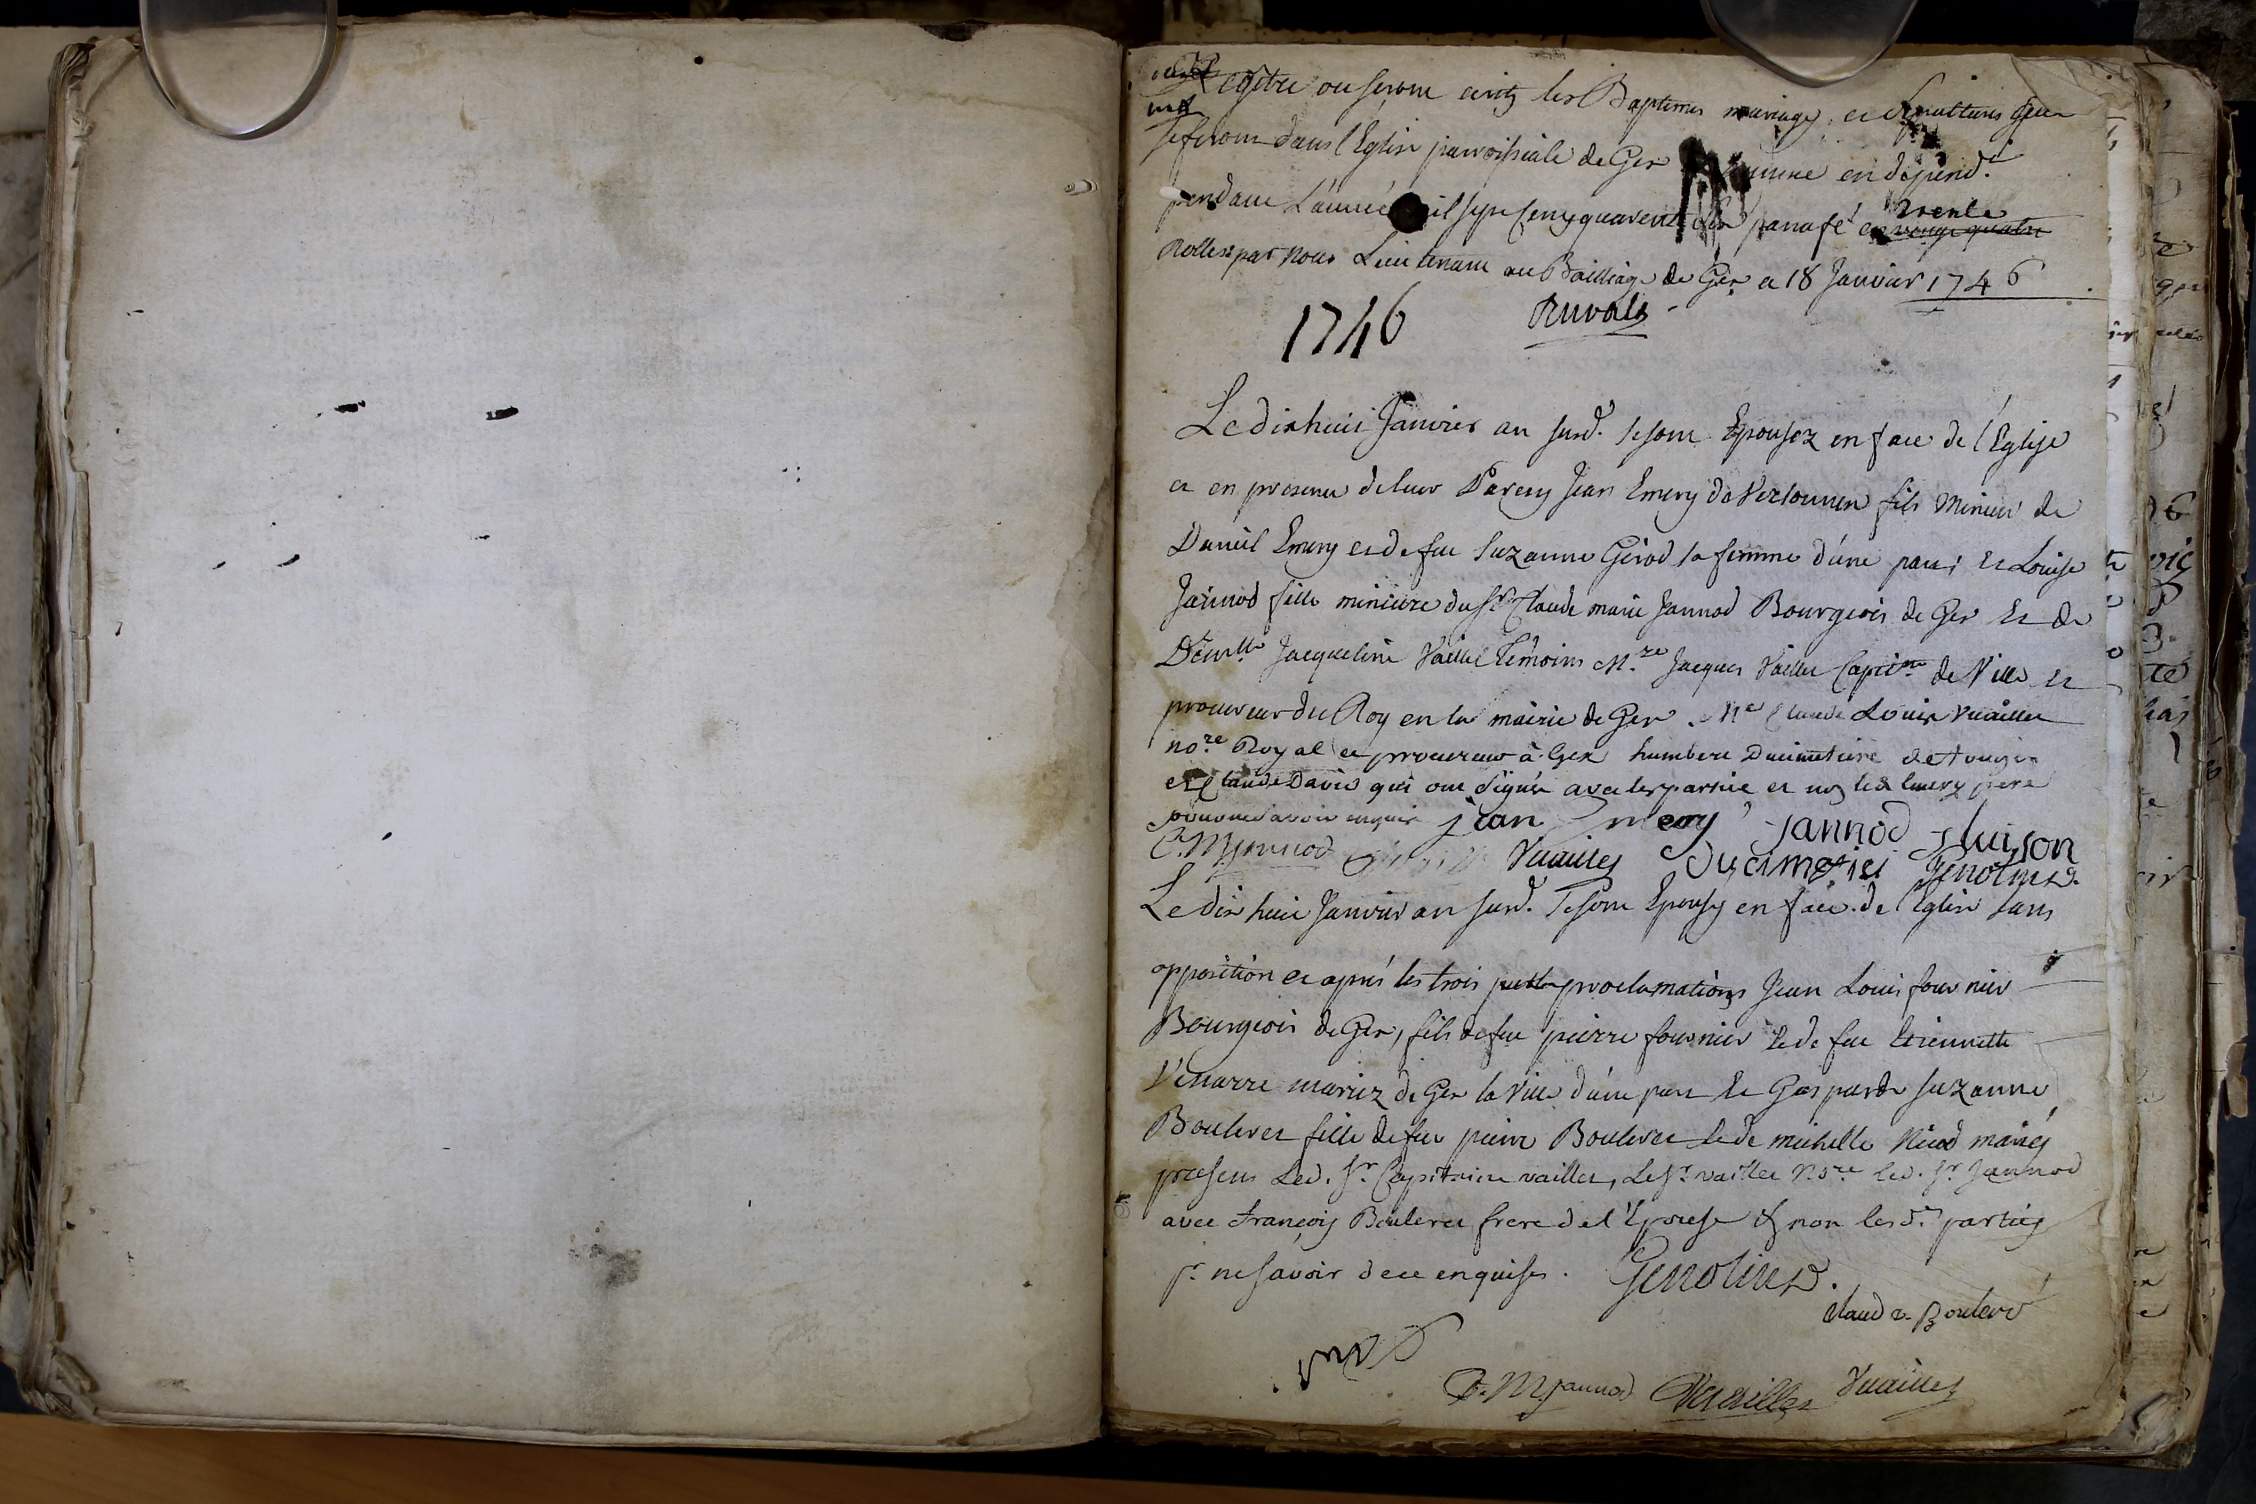 Registre ou seront ecrits les Baptemes mariages et sepultures qui
se feront dans l'Eglise parroissiale de Gex en depend.te
pendant L'année mil sept cens quarente six paraphé en trente
Rolles par nous Lieutenant au Bailliage de Gex ce 18 Janvier 1746
1746
Le dix huit Janvier an susd. se sont Epousez en face de l'Eglise
et en presence de leur Parens Jean Emery de Versonnex fils Mineur de
Daniel Emery et de feu Suzanne Girod sa femme d'une part; Et Louise
Jannod fille mineure du Sr. Claude marie Jannod Bourgeois de Gex Et de
Jacqueline Vaillet Témoins M.re Jacques Vaillet Capit.ne de Ville Et
procureur du Roy en la mairie de Gex. M.e Claude Louis Vuaillet
no.re Royal et procureur à Gex humbert Ducimetiere de
et Claude David qui ont signés avec les parties et non led. Emery pere
jean Emery jannod
C. M. jannod Vuaillet ducimetier Genolin
Le dix huit Janvier an susd. Se sont Epousés en face de l'Eglise sans
opposition et aprés les trois proclamations Jean Louis fournier
Bourgeois de Gex, fils de feu pierre fournier Et de feu Etiennette
mariez de Gex la Ville d'une part Et Gasparde Suzanne
Bouleret fille de feu pierre Bouleret Et de michelle Nicod mariés
presens Led. Sr. Capitaine vaillet, Le Sr. vaillet No.re led. Sr. Jannod
avec François Bouleret frere de l'Epouse & non lesd. parties
pr. ne savoir de ce enquises. Genolin
claude Bouleré
C. M jannod Vuaillet Vuaillet